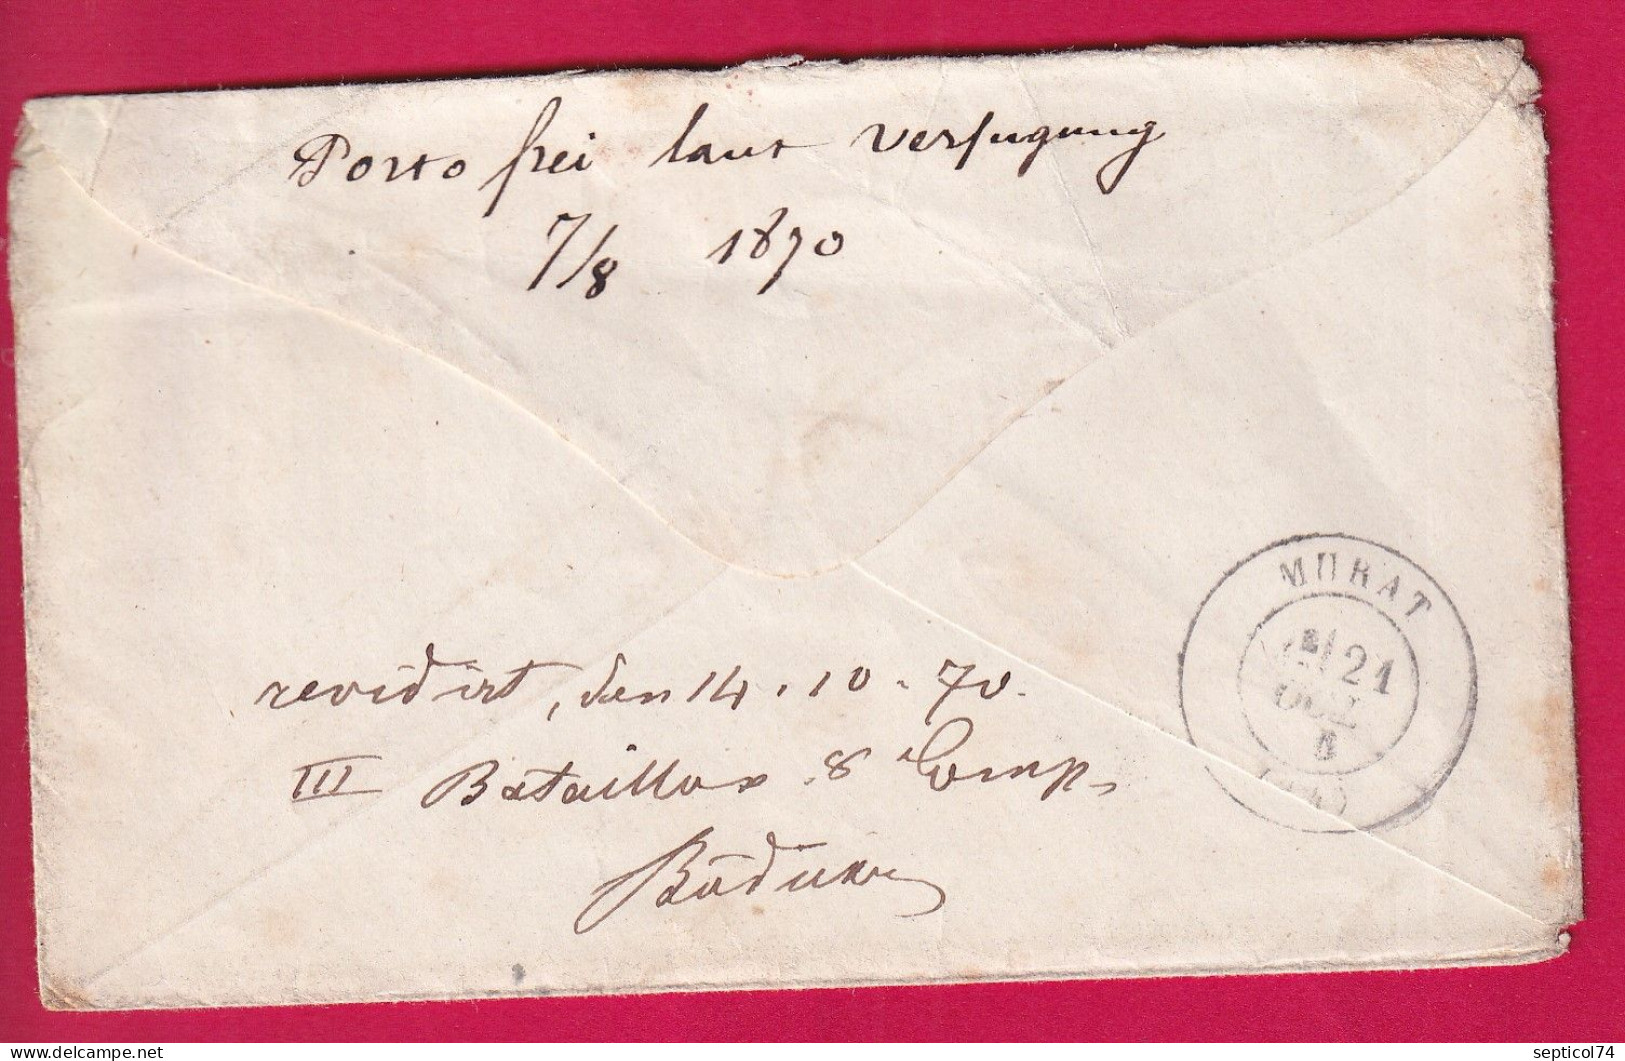 Porto frei laut verfugung
7/8 1870
MURAT
21
revidirt, den 14. 10. 70.
III Bataillon 8 Comp.
www.delcampe.net
septicol74